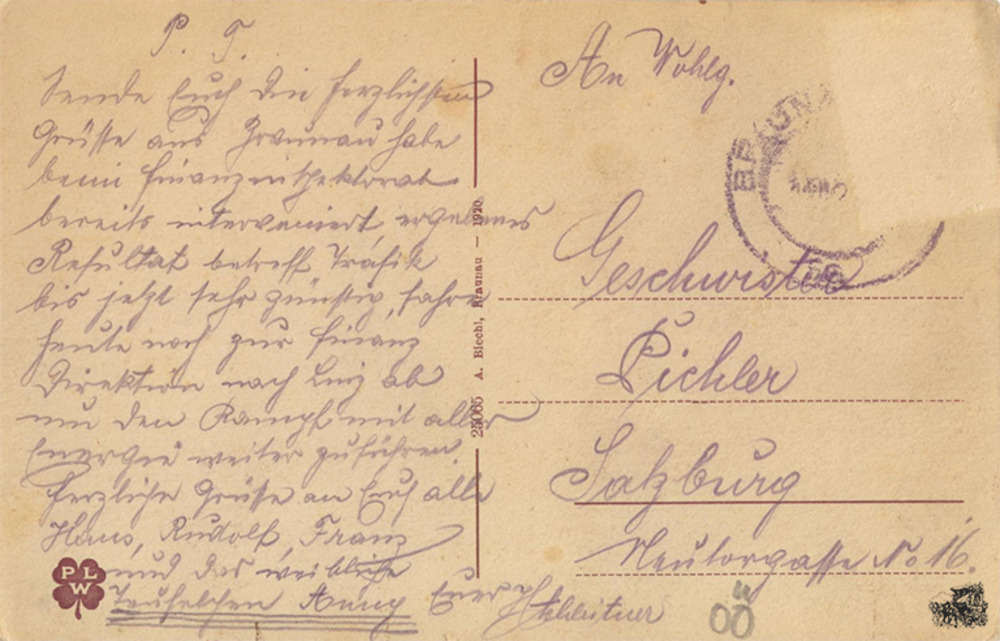 P. T.
Sende Euch die herzlichsten
Grüsse aus Braunau habe
beim Finanzinspektorat
bereits interveniert,
Resultat betreff Trafik
bis jetzt sehr günstig, fahre
heute noch zur Finanz
Direktion nach Linz ab
um den Kampf mit aller
Energie weiter zuführen.
Herzliche Grüsse an Euch alle
Hans, Rudolf, Franz
und das weibliche
Teufelchen Anny Euer
An Wohlg.
BRAUN
Geschwister
Pichler
Salzburg
Neutorgasse No 16.
25065 A. Blechl, Braunau — 1920
PLW
OÖ